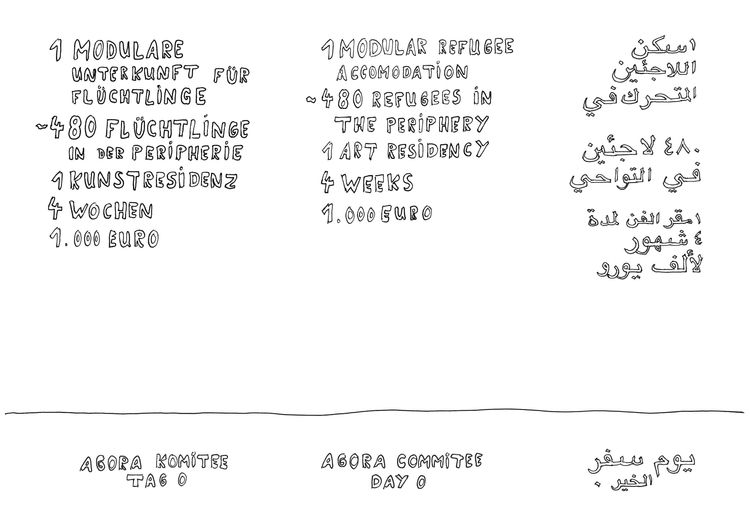 1 MODULARE
UNTERKUNFT FÜR
FLÜCHTLINGE
~480 FLÜCHTLINGE
IN DER PERIPHERIE
1 KUNSTRESIDENZ
4 WOCHEN
1.000 EURO
1 MODULAR REFUGEE
ACCOMODATION
~480 REFUGEES IN
THE PERIPHERY
1 ART RESIDENCY
4 WEEKS
1.000 EURO
١ سكن
اللاجئين
المتحرك في
٤٨٠ لاجئين
في التواحي
١ مقر الفن لمدة
٤ شهور
لألف يورو
AGORA KOMITEE
TAG 0
AGORA COMMITEE
DAY 0
يوم سفر
الخير ٠